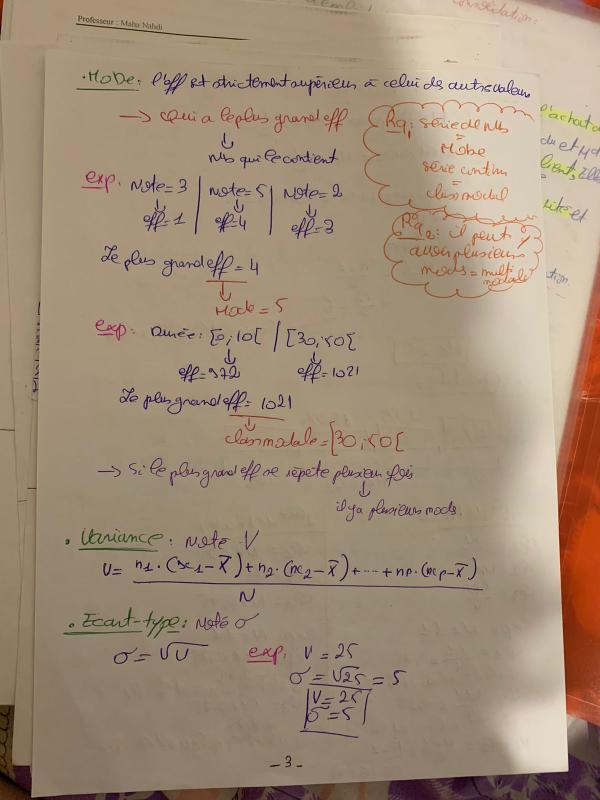 Professeur : Maha Nahdi
• MODE: l'eff est strictement supérieur à celui des autres valeurs
→ Qui a le plus grand eff
↓
Nb qui le contient
Rq1: série de Nb
=
Mode
série continu
=
class modal
Rq2: il peut y
avoir plusieurs
mods = multi
modale
exp: Note = 3 | Note = 5 | Note = 2
↓ ↓ ↓
eff = 1 | eff = 4 | eff = 3
Le plus grand eff = 4
↓
Mode = 5
exp: Durée: [0; 10[ | [30; 50[
↓ ↓
eff = 972 eff = 1021
Le plus grand eff = 1021
↓
class modale = [30; 50[
→ Si le plus grand eff se répète plusieur fois
↓
il ya plusieurs mods.
• Variance: Noté V
V = n1·(x1-X̄)+n2·(x2-X̄)+....+np·(xp-X̄)
N
• Ecart-type: Noté σ
σ = √V
exp: V = 25
σ = √25 = 5
V = 25
σ = 5
- 3 -
l'achat